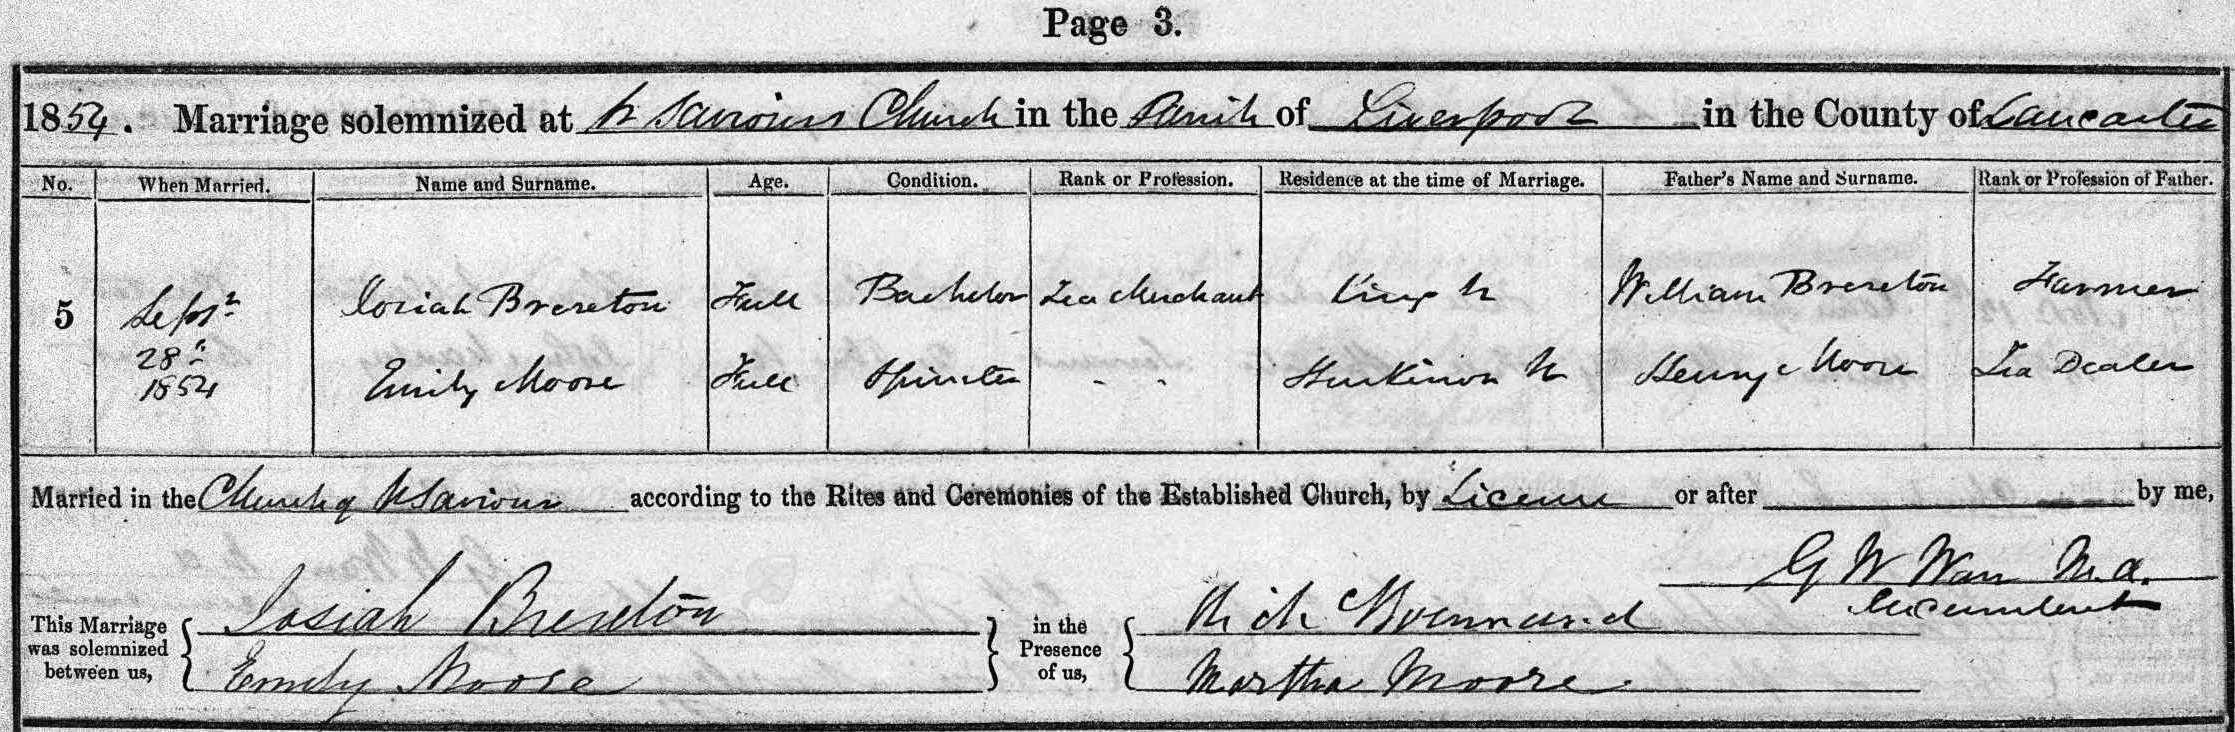 Page 3.
1854. Marriage solemnized at St Saviours Church in the Parish of Liverpool in the County of Lancaster
No. When Married. Name and Surname. Age. Condition. Rank or Profession. Residence at the time of Marriage. Father's Name and Surname. Rank or Profession of Father.
5 Sept 28th 1854 Josiah Brereton Full Bachelor Tea Merchant King St William Brereton Farmer
Emily Moore Full Spinster - - Hurkinson St Henry Moore Tea Dealer
Married in the Church of St Saviour according to the Rites and Ceremonies of the Established Church, by License or after by me,
G W Warr M.A.
Incumbent
This Marriage was solemnized between us, Josiah Brereton in the Presence of us, Rich
Emily Moore Martha Moore